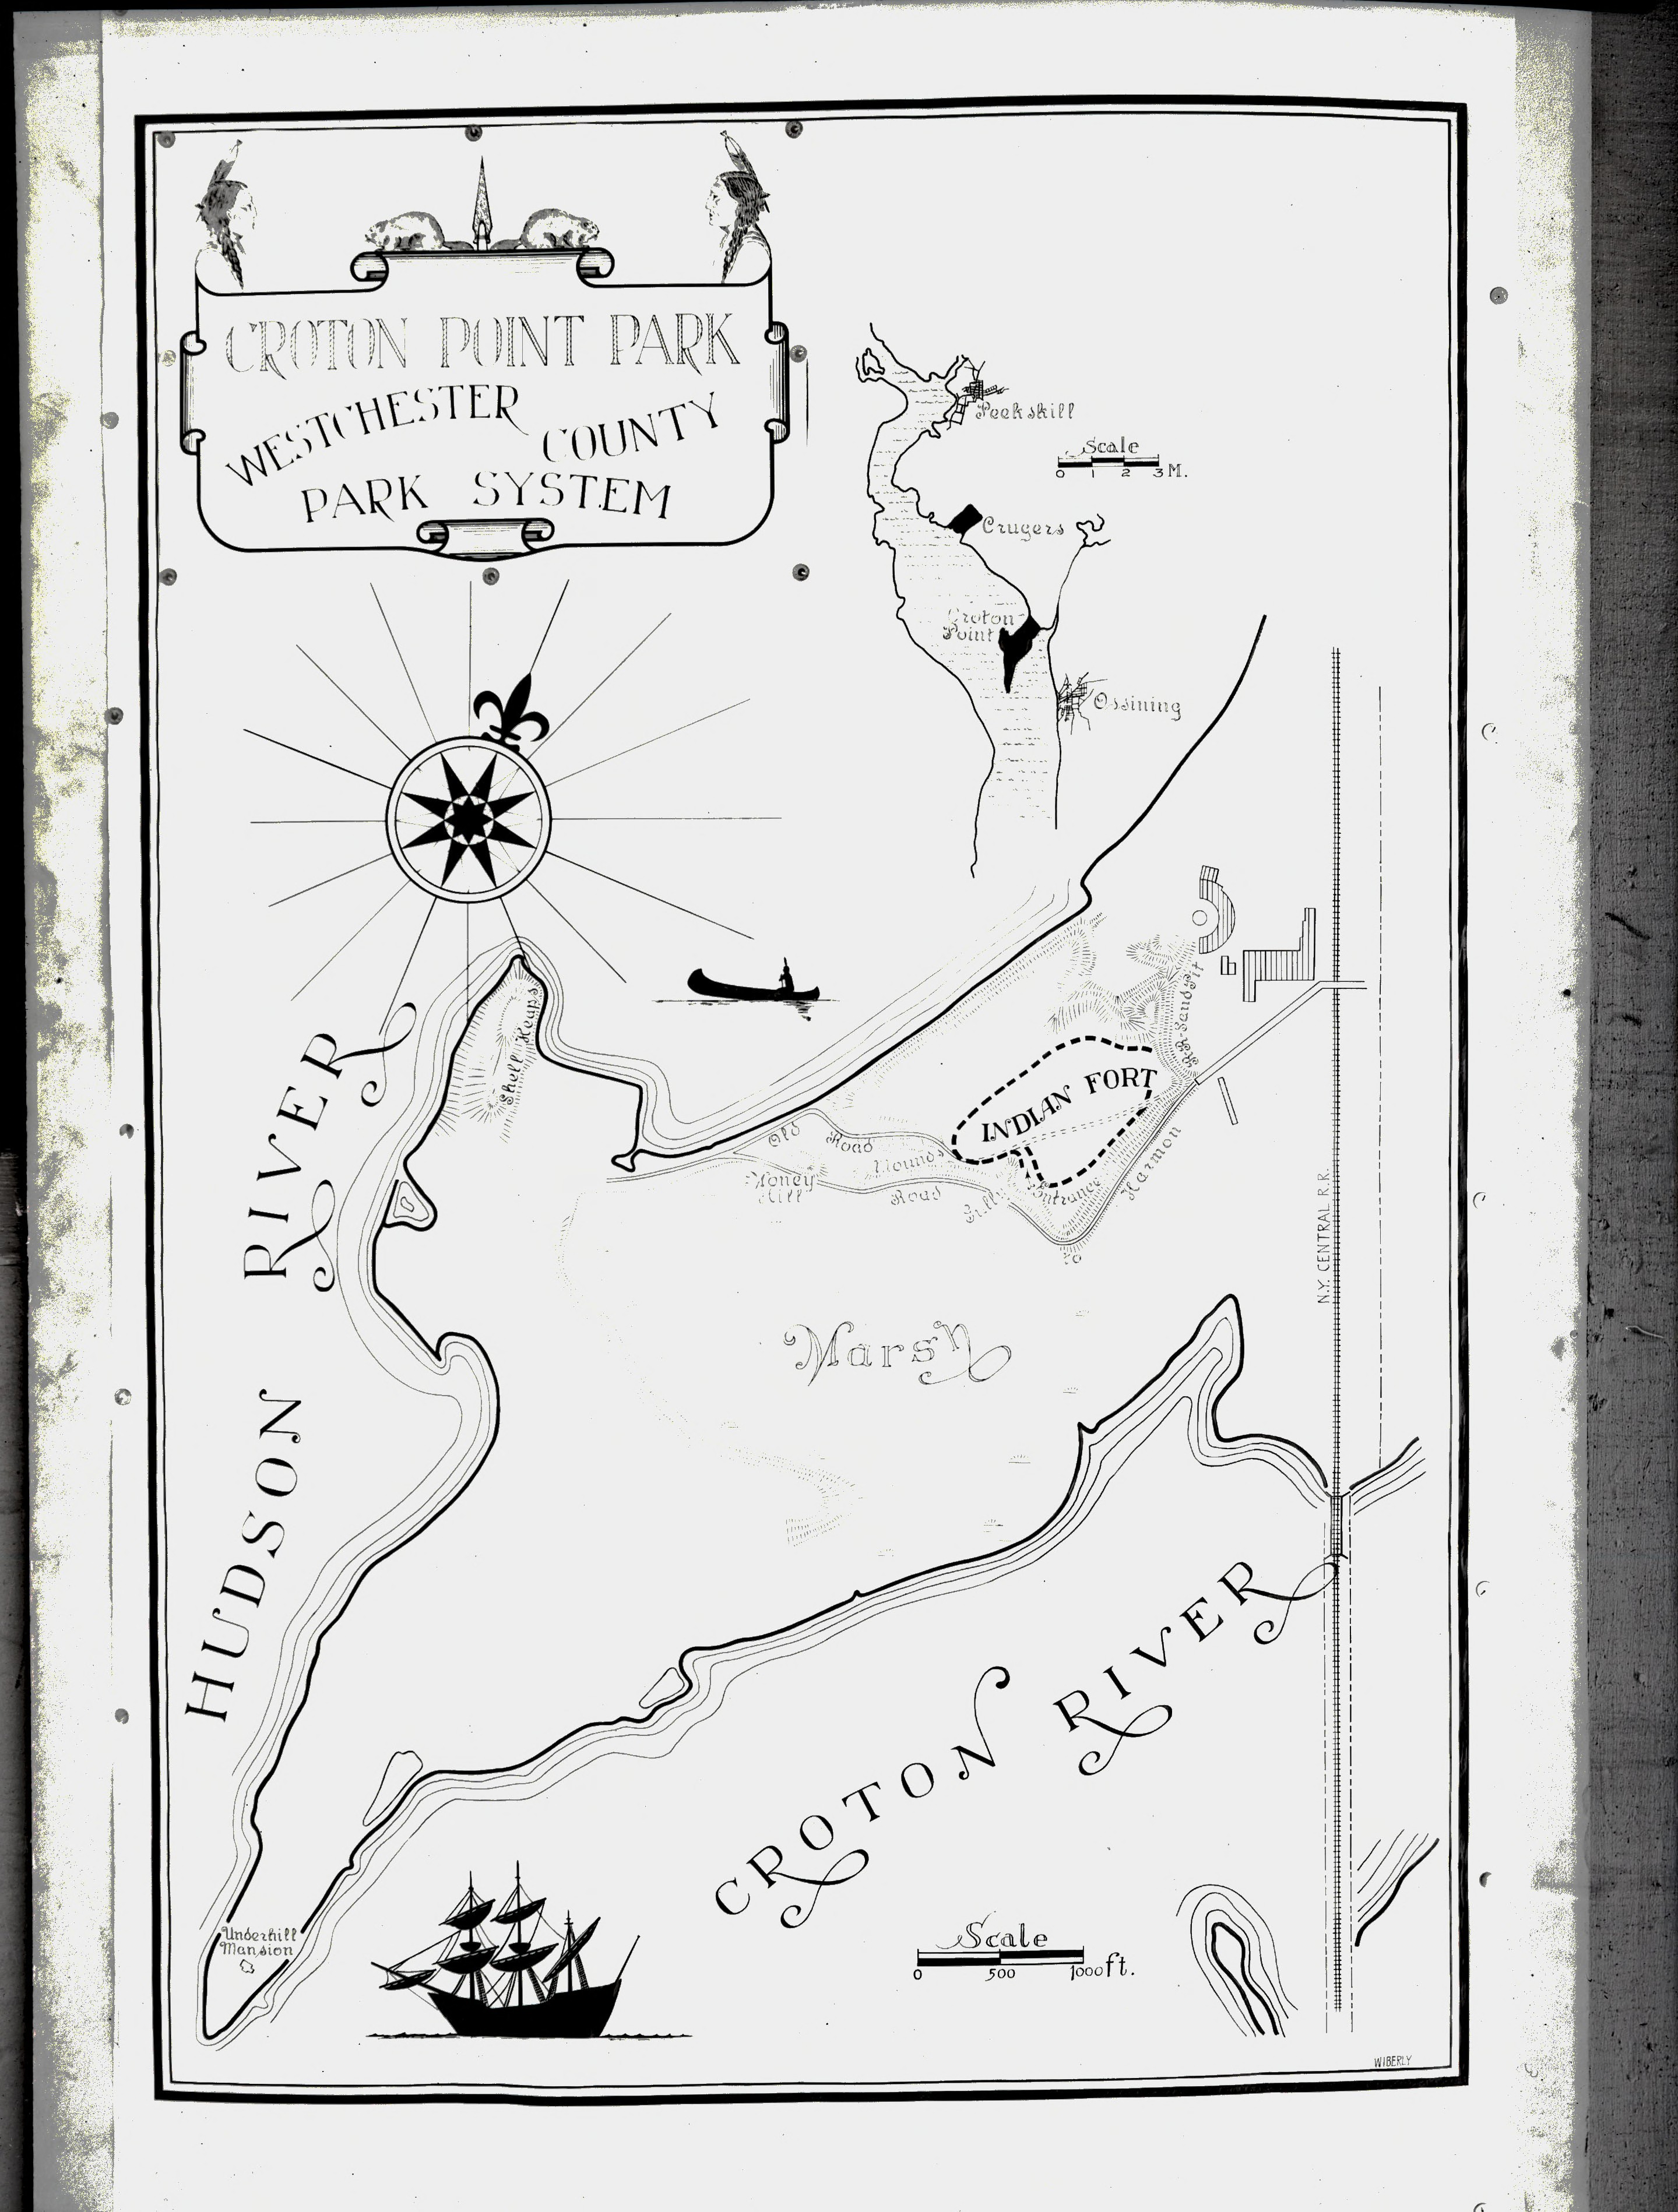 CROTON POINT PARK
WESTCHESTER
COUNTY
PARK SYSTEM
Peekskill
Scale
0 1 2 3 M.
Crugers
Croton
Point
Ossining
Shell Heaps
R.R. Sand Pit
INDIAN FORT
Old Road
Mounds
Money
Hill
Road
Gully
Entrance
To Harmon
N.Y. CENTRAL R.R.
Marsh
HUDSON RIVER
CROTON RIVER
Underhill
Mansion
Scale
0 500 1000 ft.
WIBERLY